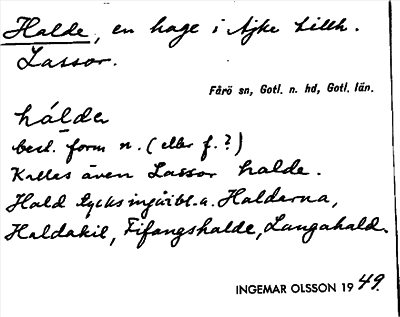 Halde, en hage i Ajke Lillh.
Lassor.
Fårö sn, Gotl. n. hd, Gotl. län.
hálde
best. form n. (eller f.?)
Kallas även Lassor halde.
Hald tycks ingå i bl.a. Halderna,
Haldakil, Fifangshalde, Langahald.
INGEMAR OLSSON 1949.